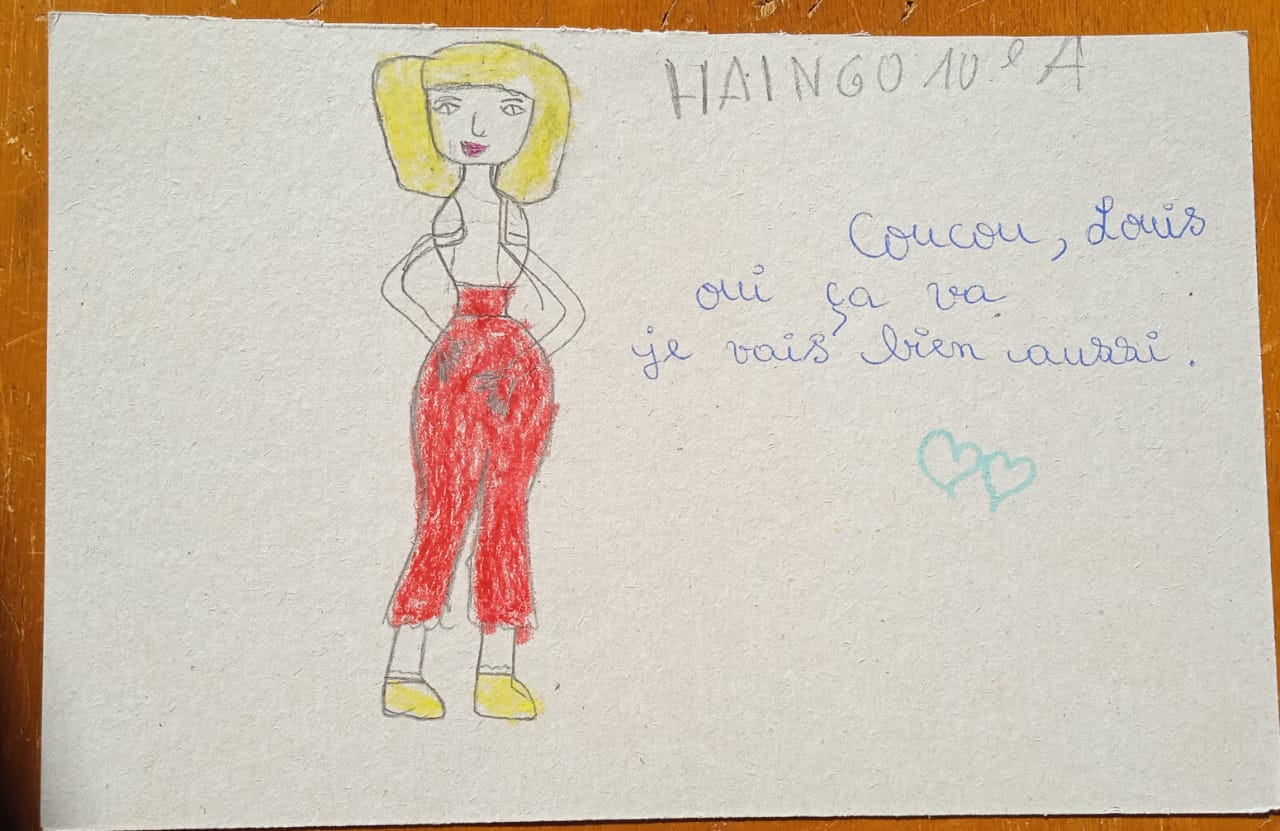 HAINGO 10e A
Coucou, Louis
oui ça va
je vais bien aussi.